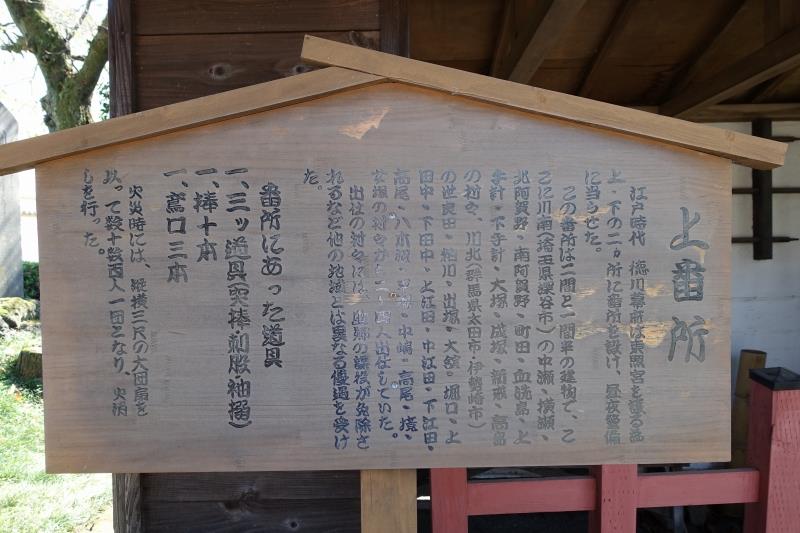 上番所
江戸時代 徳川幕府は東照宮を護る為
上・下の二ヵ所に番所を設け、昼夜警備
に当らせた。
この番所は二間と一間半の建物で、こ
こに川南(埼玉県深谷市)の中瀬・横瀬・
北阿賀野・南阿賀野・町田・血洗島・上
手計・下手計・大塚・成塚・新戒・高島
の村々、川北(群馬県太田市・伊勢崎市)
の世良田・粕川・出塚・大舘・堀口・上
田中・下田中・上江田・中江田・下江田・
高尾・八木沼・・中嶋・高尾・境・
の村々から出仕していた。
出仕の村々には、助郷の課役が免除さ
れるなど他の地域とは異なる優遇を受け
た。
番所にあった道具
一、三ッ道具(突棒刺股袖搦)
一、棒十本
一、鳶口三本
火災時には、縦横三尺の大団扇を
以って数十数百人一団となり、火消
しを行った。